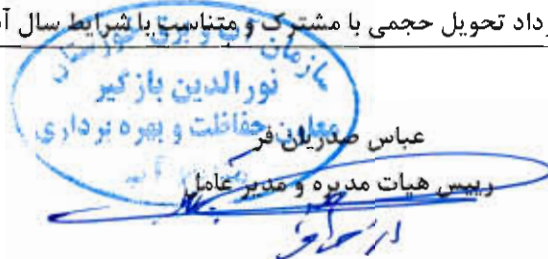 رداد تحویل حجمی با مشترک و متناسب با شرایط سال آ
سازمان آب و برق خوزستان
نورالدین بازگیر
معاون حفاظت و بهره برداری
عباس صدریان فر
رییس هیات مدیره و مدیر عامل